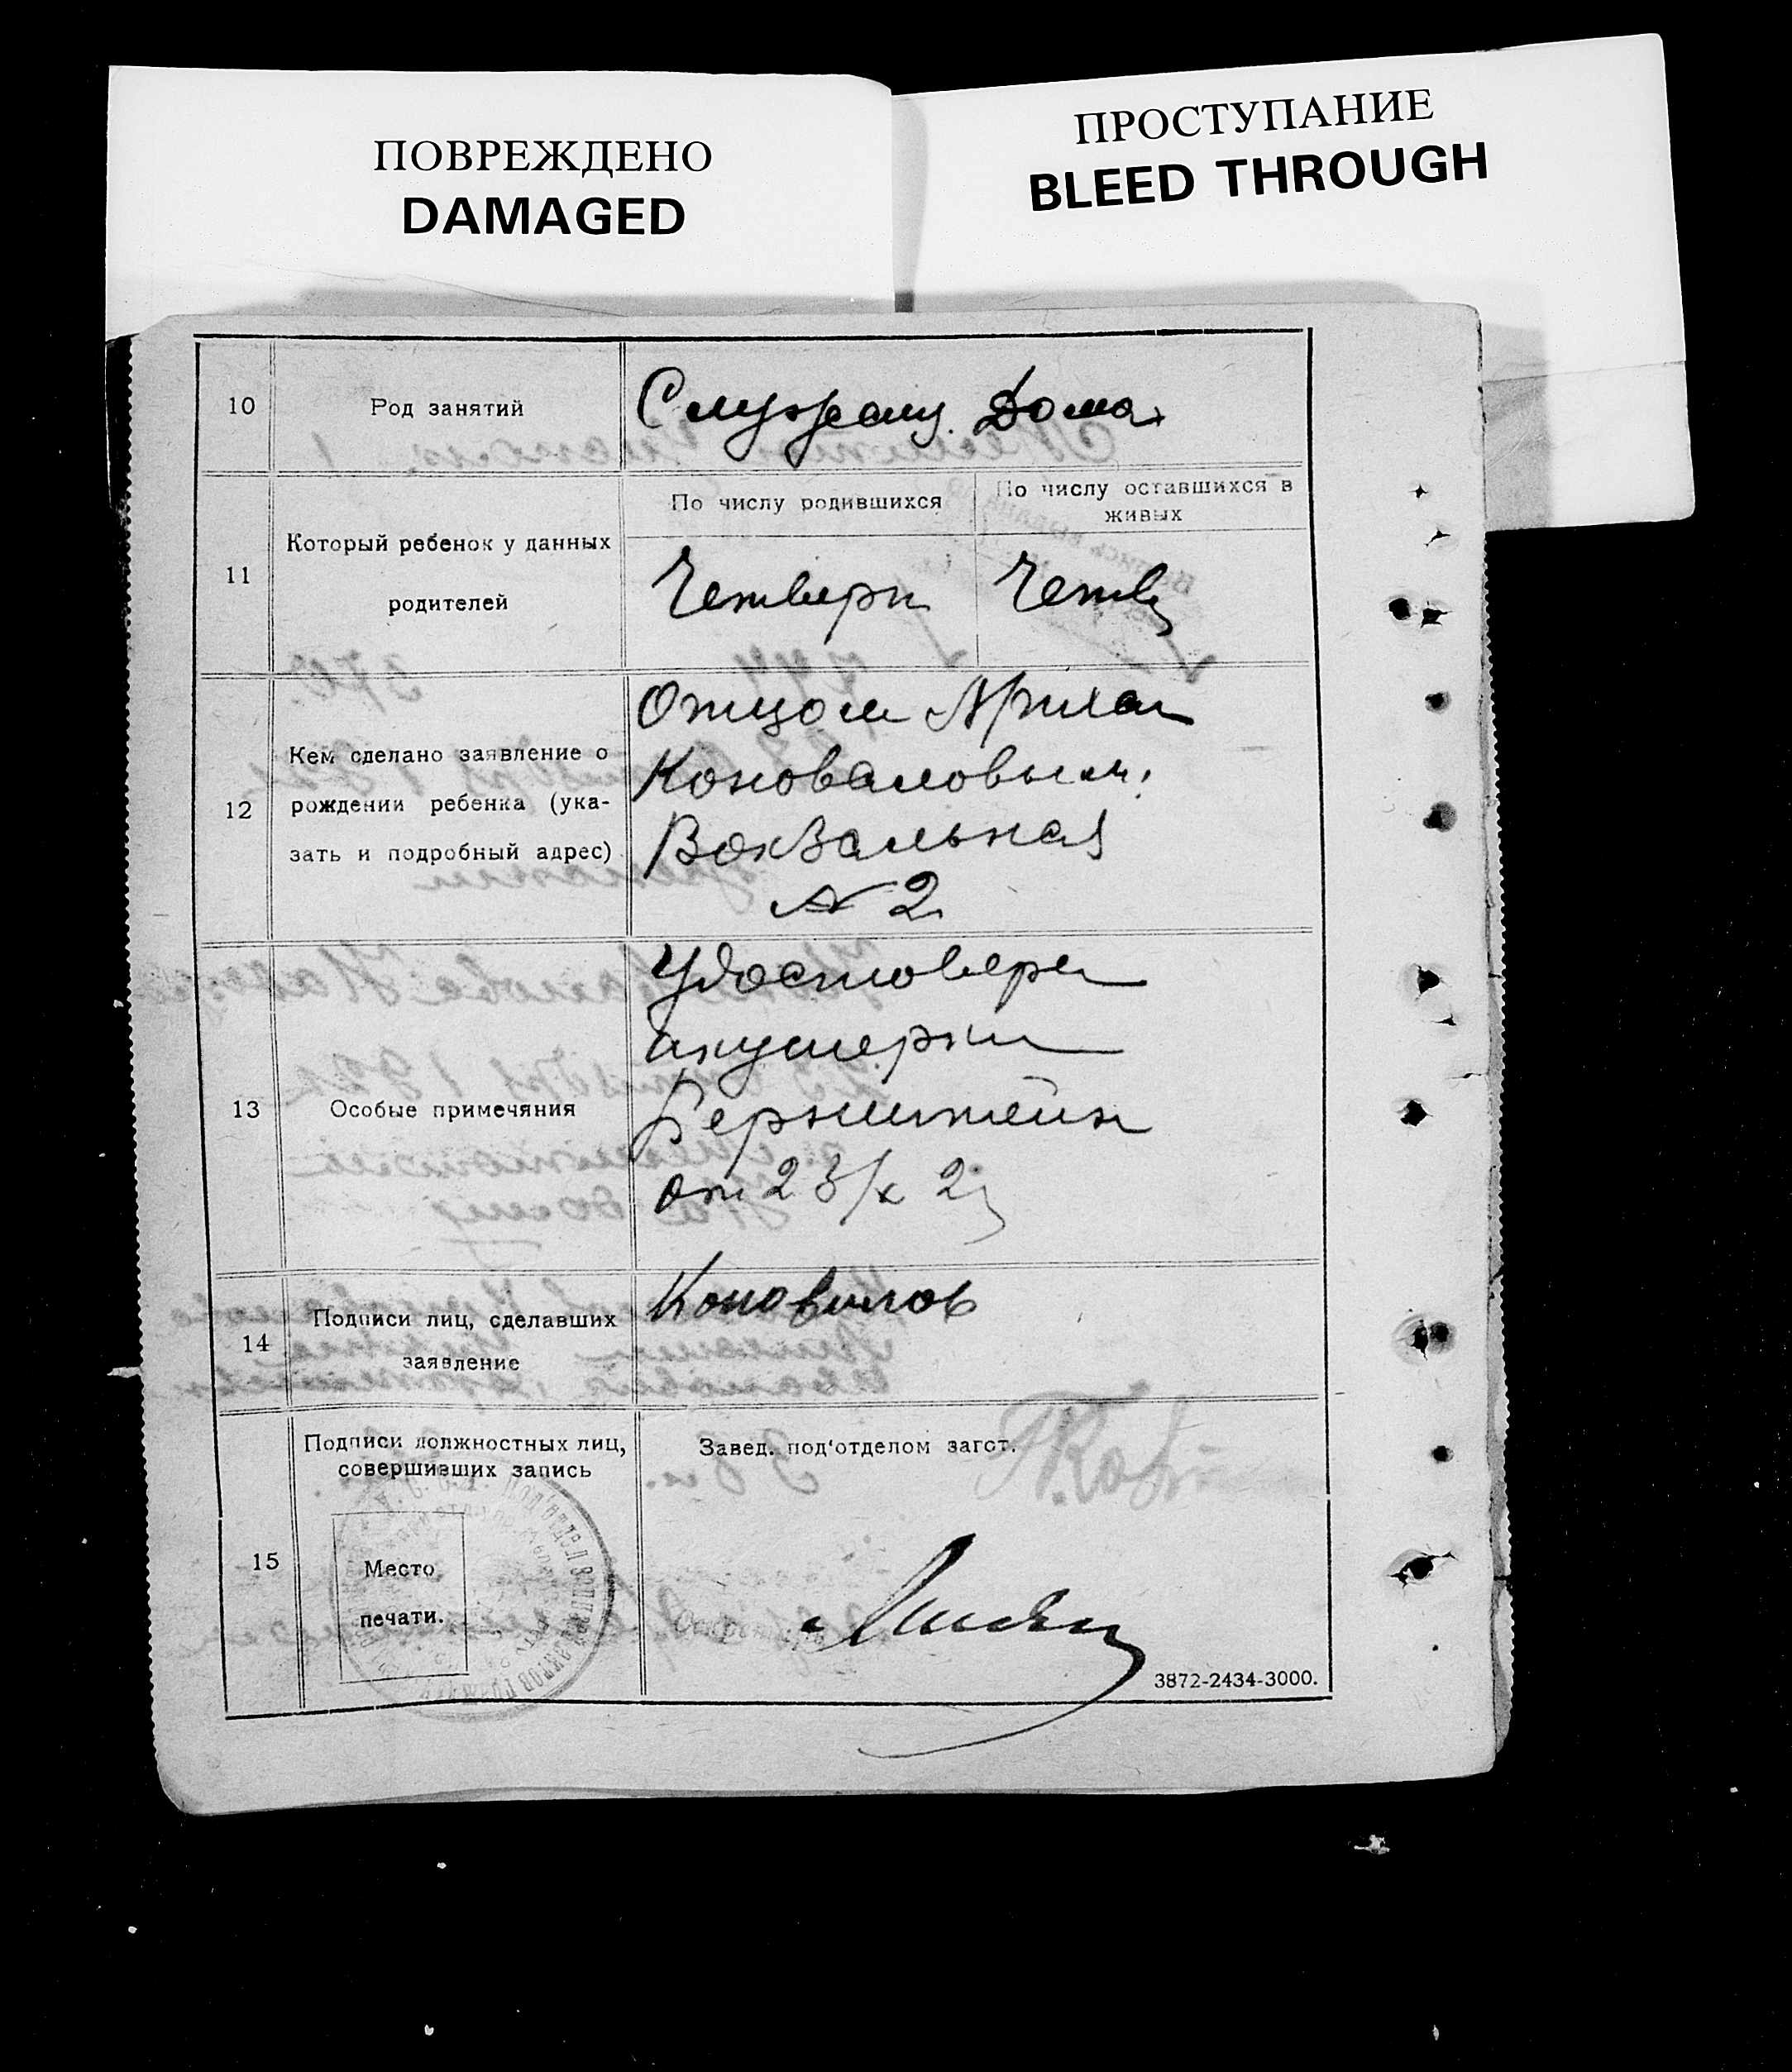 ПОВРЕЖДЕНО
DAMAGED
ПРОСТУПАНИЕ
BLEED THROUGH
10
Род занятий
Служащ. Дома
11
Который ребенок у данных
родителей
По числу родившихся
По числу оставшихся в
живых
Четверт
Четв
12
Кем сделано заявление о
рождении ребенка (ука-
зать и подробный адрес)
Отцом
Коноваловым.
Вокзальная
№ 2
13
Особые примечяния
Удостовере
акушерки
Бернштейн
от 23/X
14
Подписи лиц, сделавших
заявление
Коновалов
15
Подписи должностных лиц,
совершивших запись
Место
печати.
Завед. под‘отделом загст.
Секретарь
3872-2434-3000.